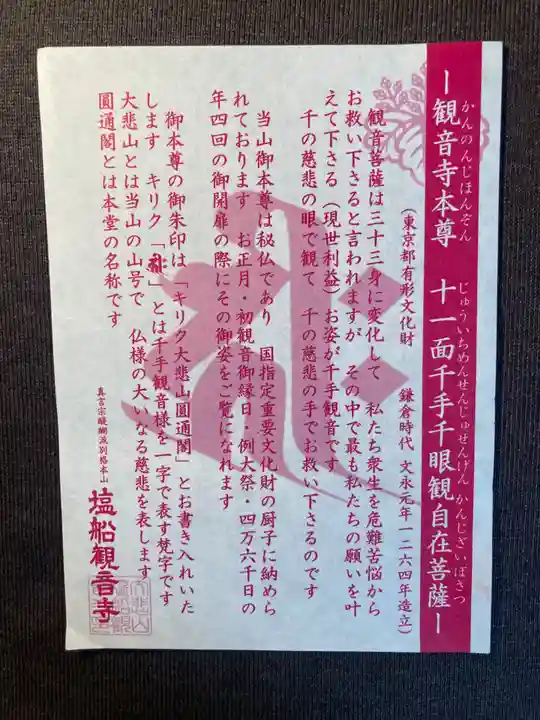 ー観音寺本尊 十一面千手千眼観自在菩薩ー
かんのんじほんぞん じゅういちめんせんじゅせんげん かんじざいぼさつ
(東京都有形文化財 鎌倉時代 文永元年一二六四年造立)
観音菩薩は三十三身に変化して 私たち衆生を危難苦悩から
お救い下さると言われますが その中で最も私たちの願いを叶
えて下さる(現世利益)お姿が千手観音です
千の慈悲の眼で観て 千の慈悲の手でお救い下さるのです
当山御本尊は秘仏であり 国指定重要文化財の厨子に納めら
れております お正月・初観音御縁日・例大祭・四万六千日の
年四回の御開扉の際にその御姿をご覧になれます
御本尊の御朱印は、「キリク大悲山圓通閣」とお書き入れいた
します キリク「」とは千手観音様を一字で表す梵字です
大悲山とは当山の山号で 仏様の大いなる慈悲を表します
圓通閣とは本堂の名称です
真言宗醍醐派別格本山
塩船観音寺